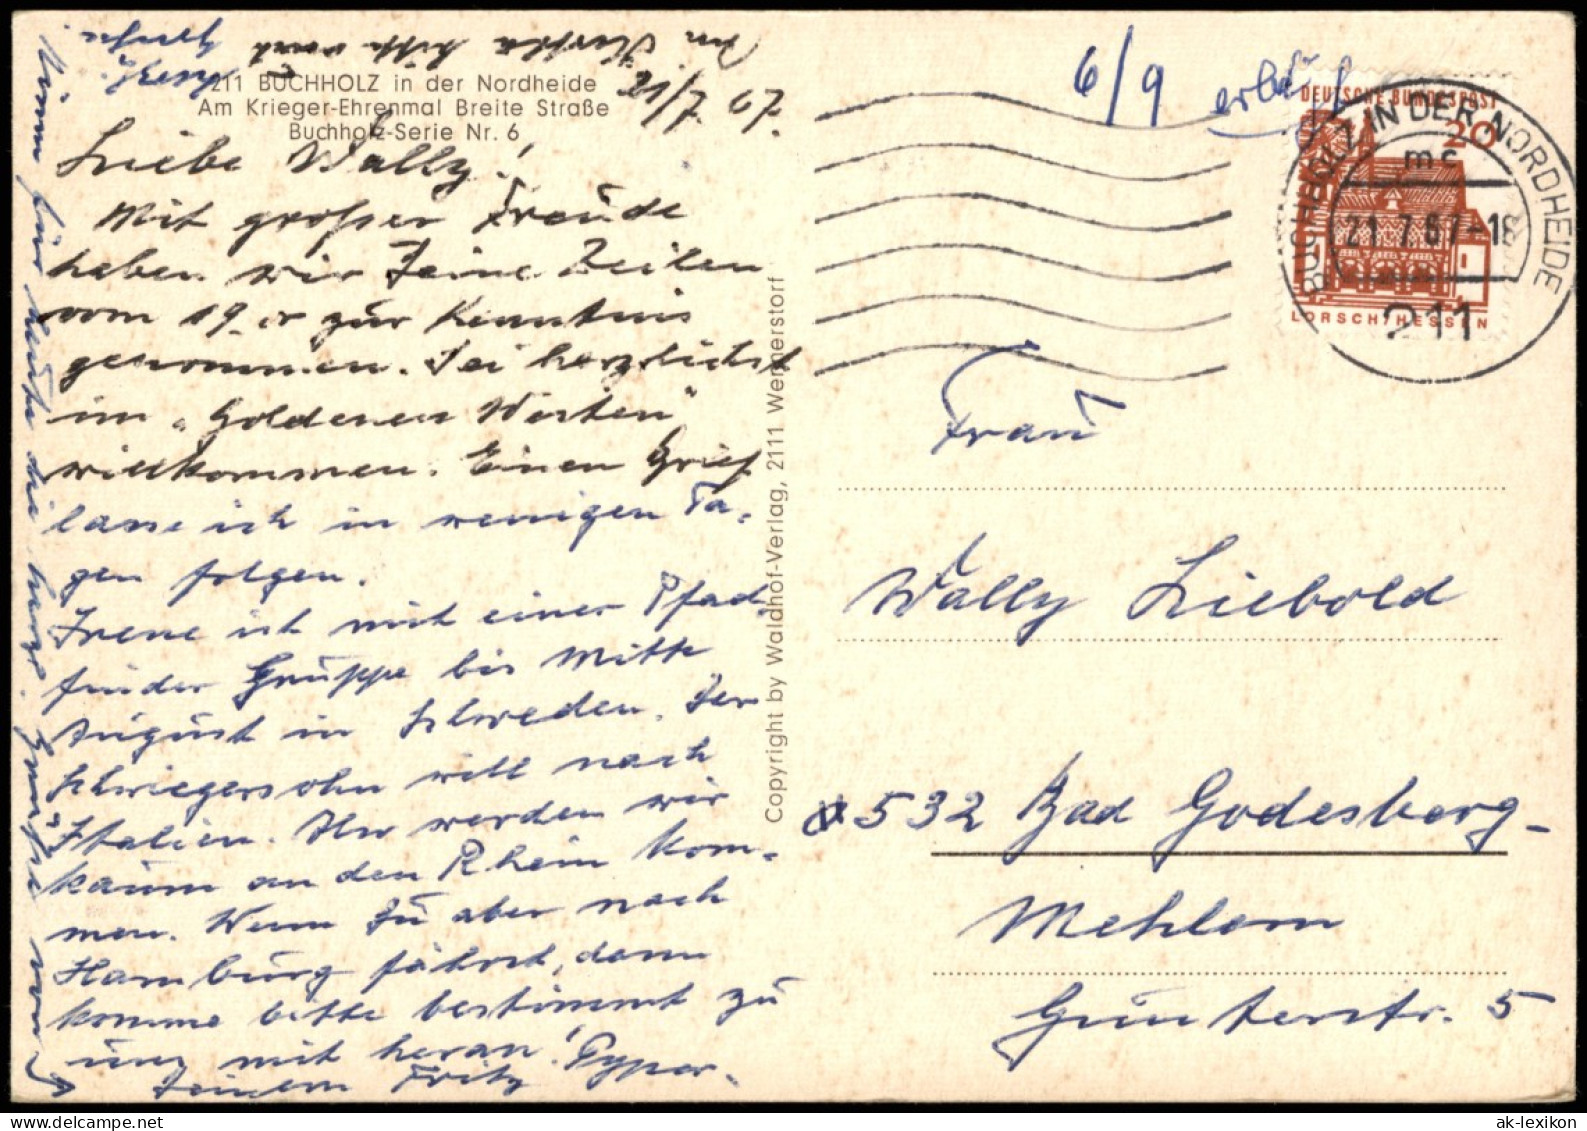 211 BUCHHOLZ in der Nordheide
Am Krieger-Ehrenmal Breite Straße
Buchholz-Serie Nr. 6
Liebe Wally!
Mit großer Freude
haben wir Deine Zeilen
vom 19. zur Kenntnis
genommen. Sei herzlichst
im "Goldenen Westen"
willkommen. Einen Brief
lasse ich in wenigen Ta-
gen folgen.
Irene ist mit einer Pfad-
finder Gruppe bis Mitte
August in Schweden. Der
Schwiegersohn will nach
Italien. Also werden wir
kaum an den Rhein kom-
men. Wenn Du aber nach
Hamburg fährst, dann
komme bitte bestimmt zu
uns mit heran!
Deinem Fritz
Nimm für heute die herzl. Grüße von
Copyright by Waldhof-Verlag, 2111 Wennerstorf
6/9
DEUTSCHE BUNDESPOST
20
LORSCH/HESSEN
BUCHHOLZ IN DER NORDHEIDE
mc
21.7.67-18
211
Frau
Wally Liebold
532 Bad Godesberg-
Mehlem
Günterstr. 5
ak-lexikon